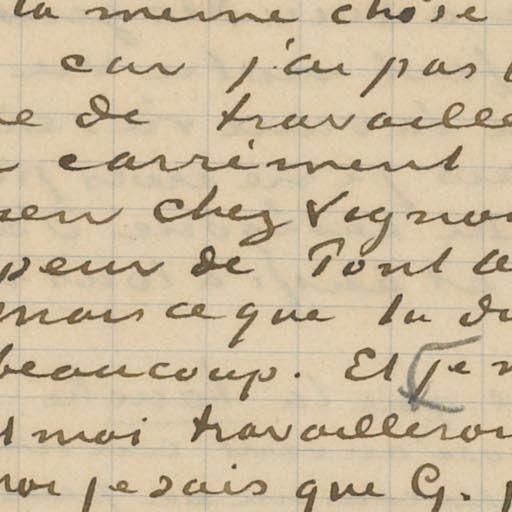 la meme chose
car j'ai pas
de travaille
carrément
chez Vognon
peur de Tout
mais ce que tu
beaucoup. Et je
moi travailleron
je sais que G.